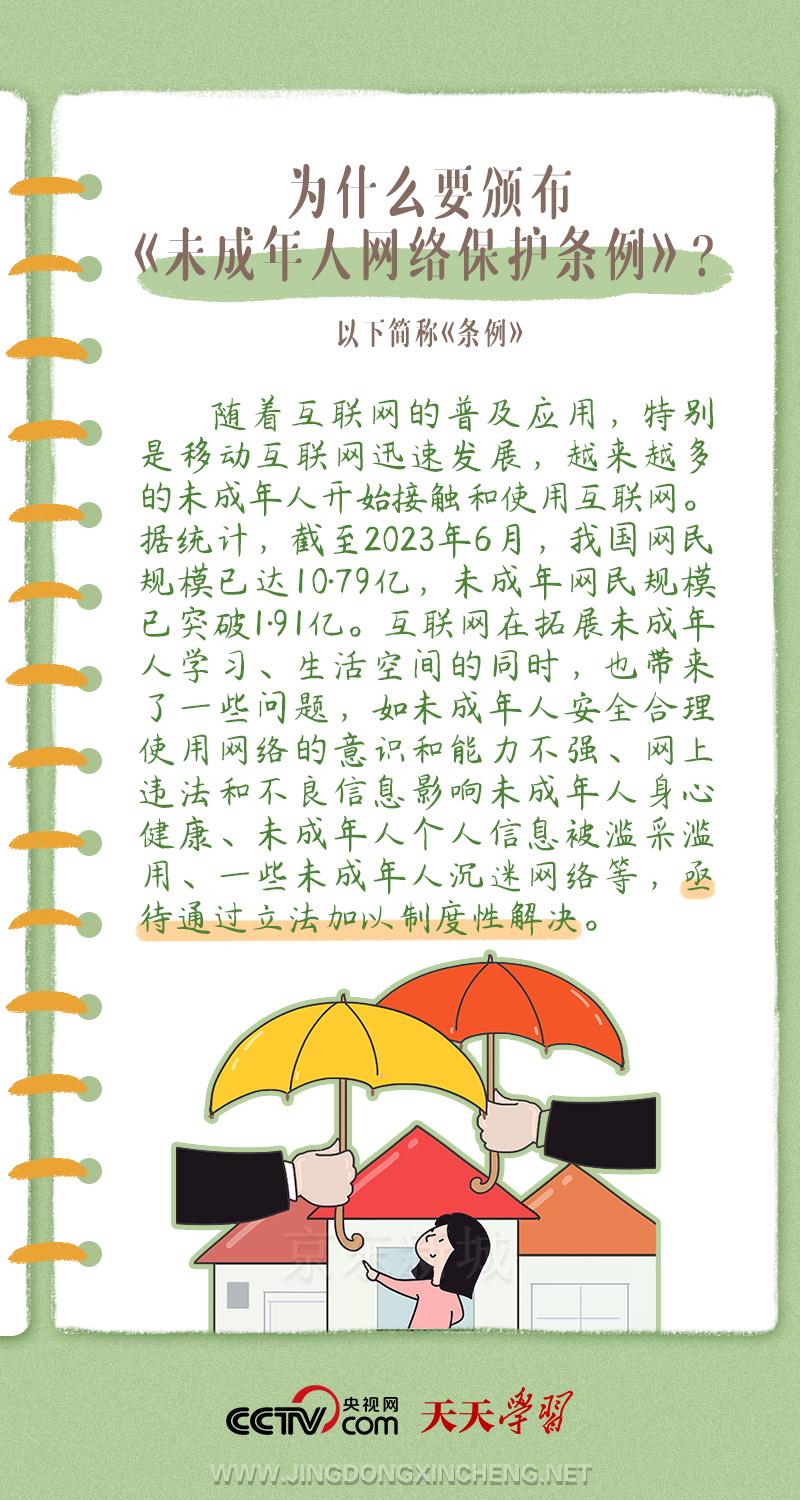 为什么要颁布
《未成年人网络保护条例》?
以下简称《条例》
随着互联网的普及应用，特别
是移动互联网迅速发展，越来越多
的未成年人开始接触和使用互联网。
据统计，截至2023年6月，我国网民
规模已达10.79亿，未成年网民规模
已突破1.91亿。互联网在拓展未成年
人学习、生活空间的同时，也带来
了一些问题，如未成年人安全合理
使用网络的意识和能力不强、网上
违法和不良信息影响未成年人身心
健康、未成年人个人信息被滥采滥
用、一些未成年人沉迷网络等，亟
待通过立法加以制度性解决。
京东新城
CCTV.com 央视网 天天学习
WWW.JINGDONGXINCHENG.NET